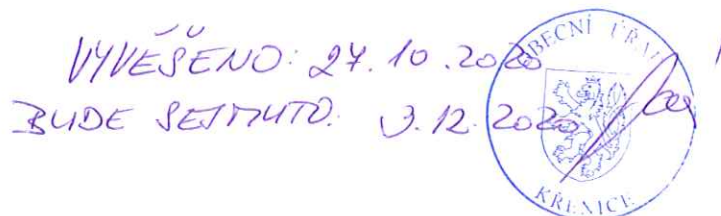 VYVĚŠENO: 27.10.2020
BUDE SEJMUTO: 3.12.2020
OBECNÍ ÚŘAD
KŘENICE